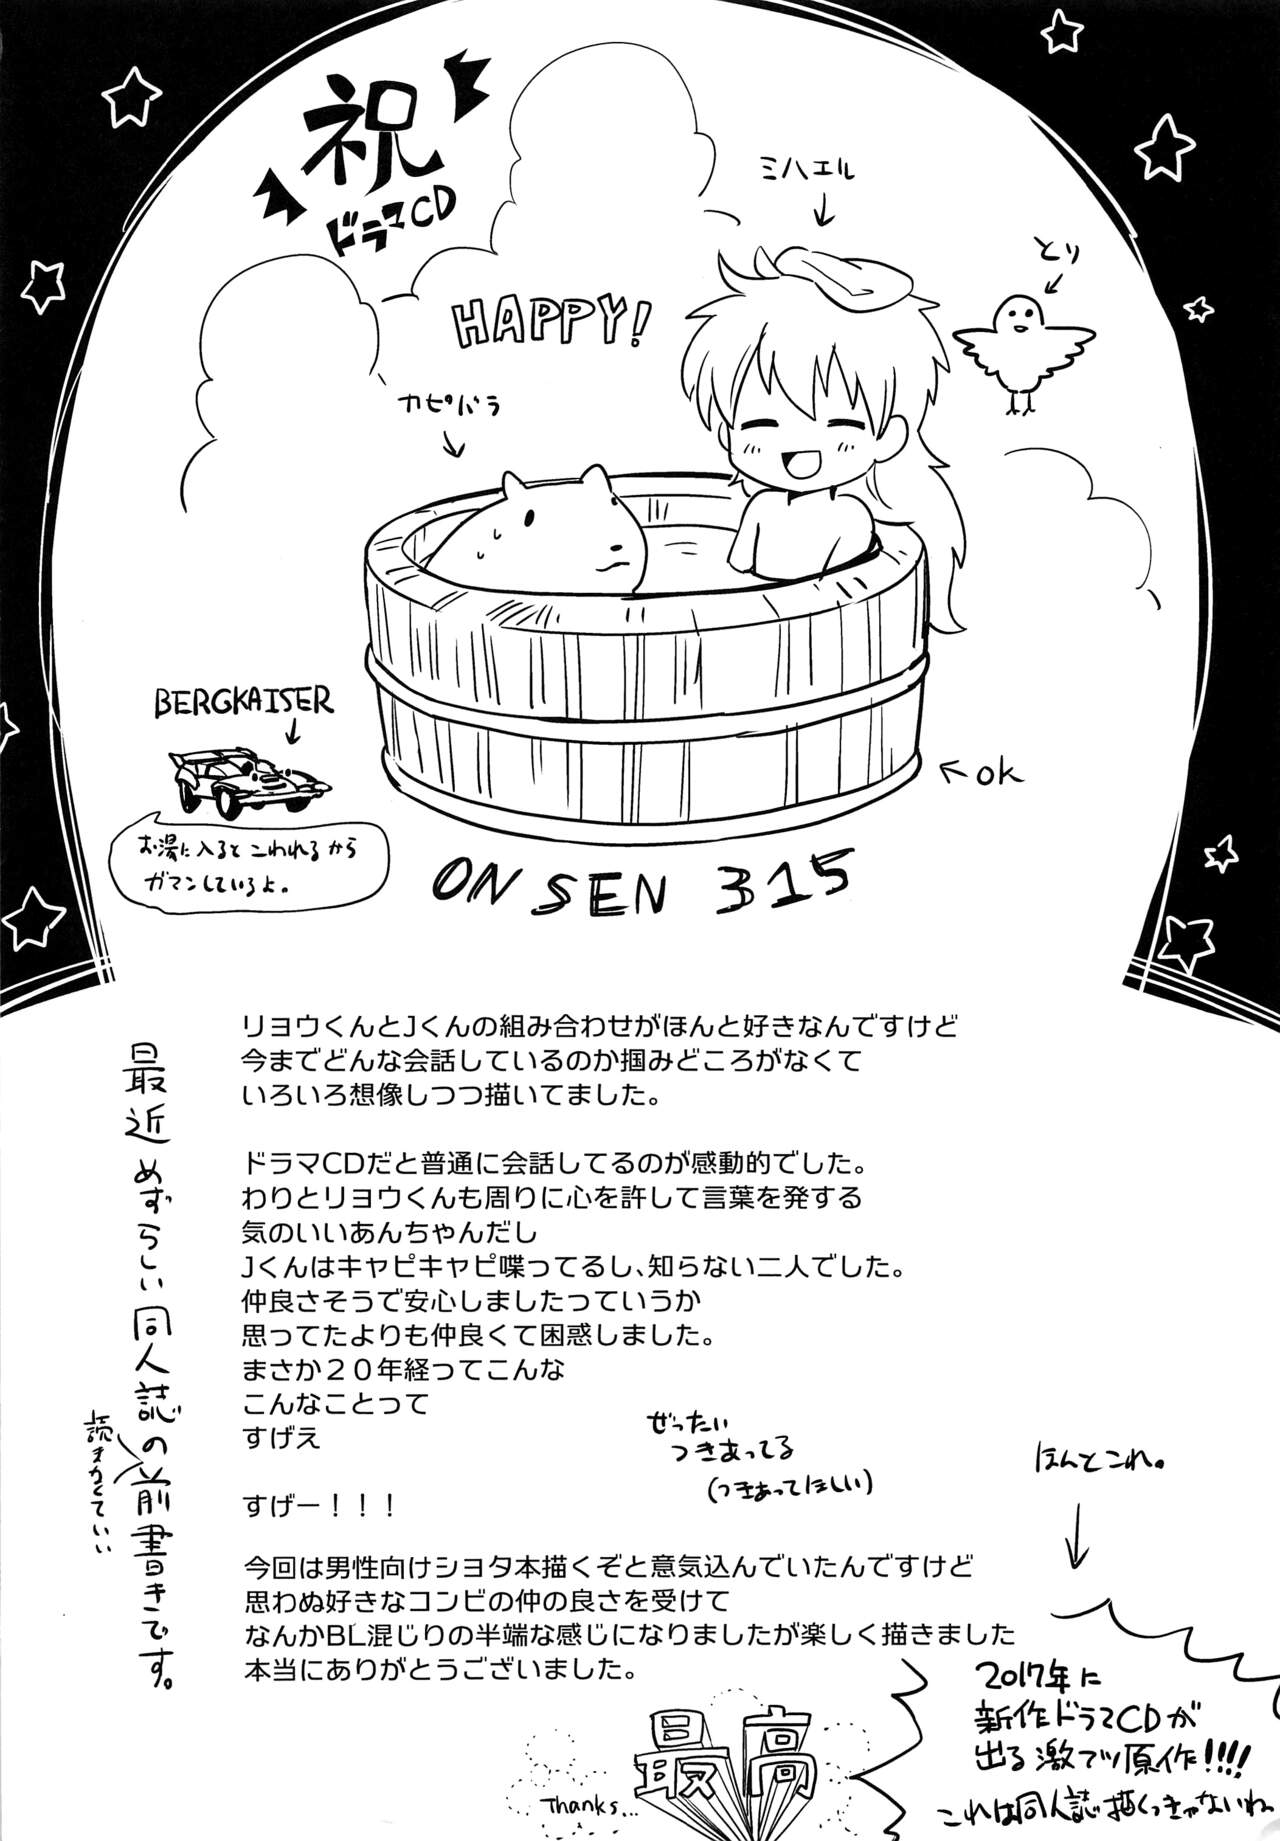 祝
ドラマCD
ミハエル
とり
HAPPY!
カピバラ
BERGKAISER
←ok
お湯に入るとこわれるから
ガマンしているよ。
ONSEN 315
最近めずらしい同人誌の前書きです。
読まなくていい
リョウくんとJくんの組み合わせがほんと好きなんですけど
今までどんな会話しているのか掴みどころがなくて
いろいろ想像しつつ描いてました。
ドラマCDだと普通に会話してるのが感動的でした。
わりとリョウくんも周りに心を許して言葉を発する
気のいいあんちゃんだし
Jくんはキャピキャピ喋ってるし、知らない二人でした。
仲良さそうで安心しましたっていうか
思ってたよりも仲良くて困惑しました。
まさか２０年経ってこんな
こんなことって
すげえ
ぜったい
つきあってる
(つきあってほしい)
ほんとこれ。
すげー！！！
今回は男性向けショタ本描くぞと意気込んでいたんですけど
思わぬ好きなコンビの仲の良さを受けて
なんかBL混じりの半端な感じになりましたが楽しく描きました
本当にありがとうございました。
最高
Thanks...
2017年に
新作ドラマCDが
出る激アツ原作!!!!
これは同人誌描くっきゃないね